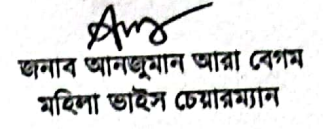 জনাব আনজুমান আরা বেগম
মহিলা ভাইস চেয়ারম্যান